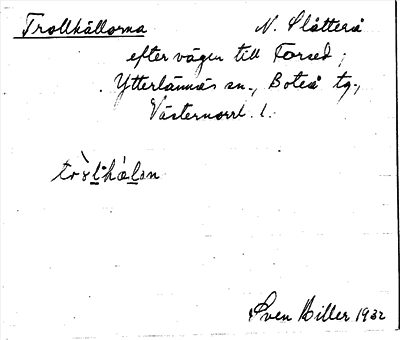 Trollkällorna N. Slåtterå
efter vägen till Forsed,
Ytterlännäs sn., Boteå tg.,
Västernorrl. l.
Sven Biller 1932